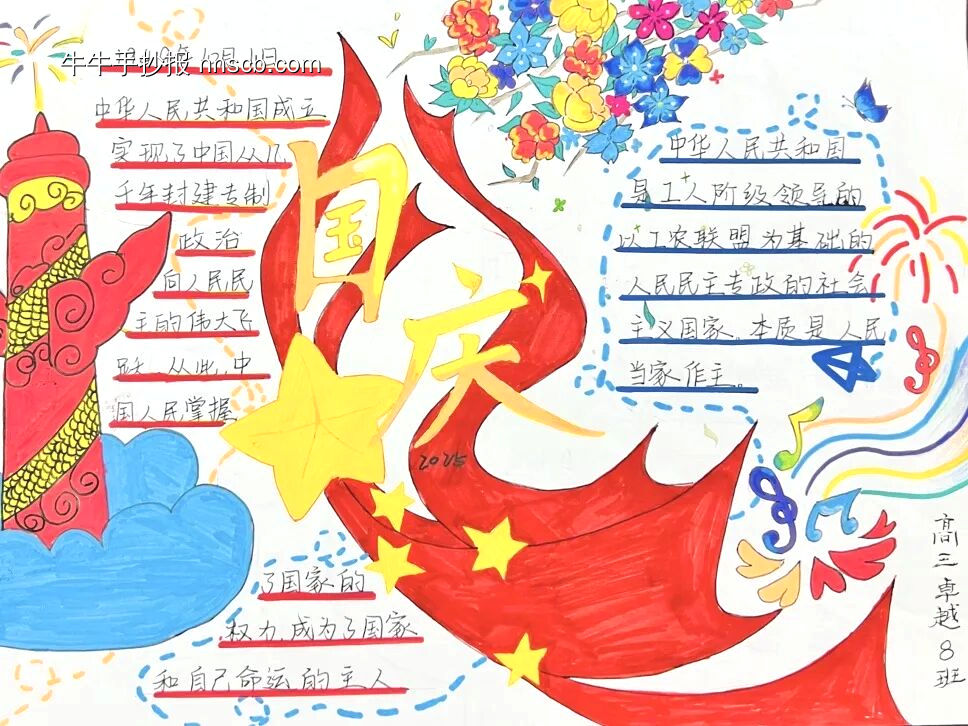 牛牛手抄报 hnscb.com
中华人民共和国成立
实现了中国从几
千年封建专制
政治
向人民民
主的伟大飞
跃。从此,中
国人民掌握
了国家的
权力,成为了国家
和自己命运的主人
国庆
2025
中华人民共和国
是工人阶级领导的
以工农联盟为基础的
人民民主专政的社会
主义国家。本质是人民
当家作主。
高三卓越8班